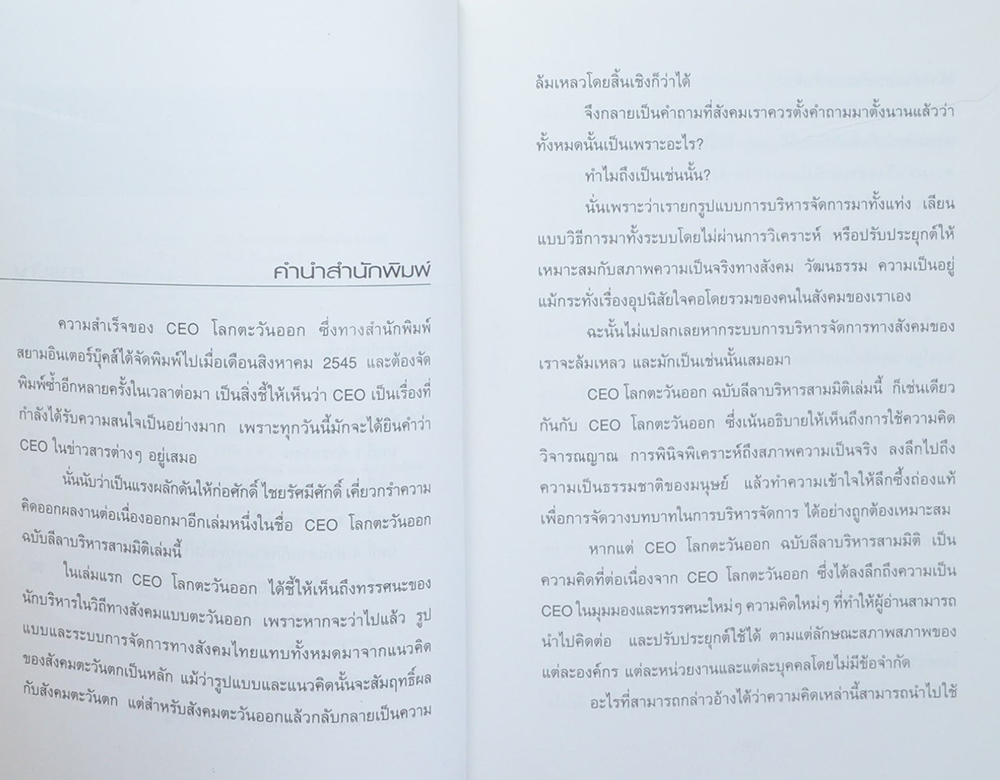 คำนำสำนักพิมพ์
ความสำเร็จของ CEO โลกตะวันออก ซึ่งทางสำนักพิมพ์
สยามอินเตอร์บุ๊คส์ได้จัดพิมพ์ไปเมื่อเดือนสิงหาคม 2545 และต้องจัด
พิมพ์ซ้ำอีกหลายครั้งในเวลาต่อมา เป็นสิ่งชี้ให้เห็นว่า CEO เป็นเรื่องที่
กำลังได้รับความสนใจเป็นอย่างมาก เพราะทุกวันนี้มักจะได้ยินคำว่า
CEO ในข่าวสารต่างๆ อยู่เสมอ
นั่นนับว่าเป็นแรงผลักดันให้ก่อศักดิ์ ไชยรัศมีศักดิ์ เคี่ยวกรำความ
คิดออกผลงานต่อเนื่องออกมาอีกเล่มหนึ่งในชื่อ CEO โลกตะวันออก
ฉบับลีลาบริหารสามมิติเล่มนี้
ในเล่มแรก CEO โลกตะวันออก ได้ชี้ให้เห็นถึงทรรศนะของ
นักบริหารในวิถีทางสังคมแบบตะวันออก เพราะหากจะว่าไปแล้ว รูป
แบบและระบบการจัดการทางสังคมไทยแทบทั้งหมดมาจากแนวคิด
ของสังคมตะวันตกเป็นหลัก แม้ว่ารูปแบบและแนวคิดนั้นจะสัมฤทธิ์ผล
กับสังคมตะวันตก แต่สำหรับสังคมตะวันออกแล้วกลับกลายเป็นความ
ล้มเหลวโดยสิ้นเชิงก็ว่าได้
จึงกลายเป็นคำถามที่สังคมเราควรตั้งคำถามมาตั้งนานแล้วว่า
ทั้งหมดนั้นเป็นเพราะอะไร?
ทำไมถึงเป็นเช่นนั้น?
นั่นเพราะว่าเรายกรูปแบบการบริหารจัดการมาทั้งแท่ง เลียน
แบบวิธีการมาทั้งระบบโดยไม่ผ่านการวิเคราะห์ หรือปรับประยุกต์ให้
เหมาะสมกับสภาพความเป็นจริงทางสังคม วัฒนธรรม ความเป็นอยู่
แม้กระทั่งเรื่องอุปนิสัยใจคอโดยรวมของคนในสังคมของเราเอง
ฉะนั้นไม่แปลกเลยหากระบบการบริหารจัดการทางสังคมของ
เราจะล้มเหลว และมักเป็นเช่นนั้นเสมอมา
CEO โลกตะวันออก ฉบับลีลาบริหารสามมิติเล่มนี้ ก็เช่นเดียว
กันกับ CEO โลกตะวันออก ซึ่งเน้นอธิบายให้เห็นถึงการใช้ความคิด
วิจารณญาณ การพินิจพิเคราะห์ถึงสภาพความเป็นจริง ลงลึกไปถึง
ความเป็นธรรมชาติของมนุษย์ แล้วทำความเข้าใจให้ลึกซึ้งถ่องแท้
เพื่อการจัดวางบทบาทในการบริหารจัดการ ได้อย่างถูกต้องเหมาะสม
หากแต่ CEO โลกตะวันออก ฉบับลีลาบริหารสามมิติ เป็น
ความคิดที่ต่อเนื่องจาก CEO โลกตะวันออก ซึ่งได้ลงลึกถึงความเป็น
CEO ในมุมมองและทรรศนะใหม่ๆ ความคิดใหม่ๆ ที่ทำให้ผู้อ่านสามารถ
นำไปคิดต่อ และปรับประยุกต์ใช้ได้ ตามแต่ลักษณะสภาพสภาพของ
แต่ละองค์กร แต่ละหน่วยงานและแต่ละบุคคลโดยไม่มีข้อจำกัด
อะไรที่สามารถกล่าวอ้างได้ว่าความคิดเหล่านี้สามารถนำไปใช้